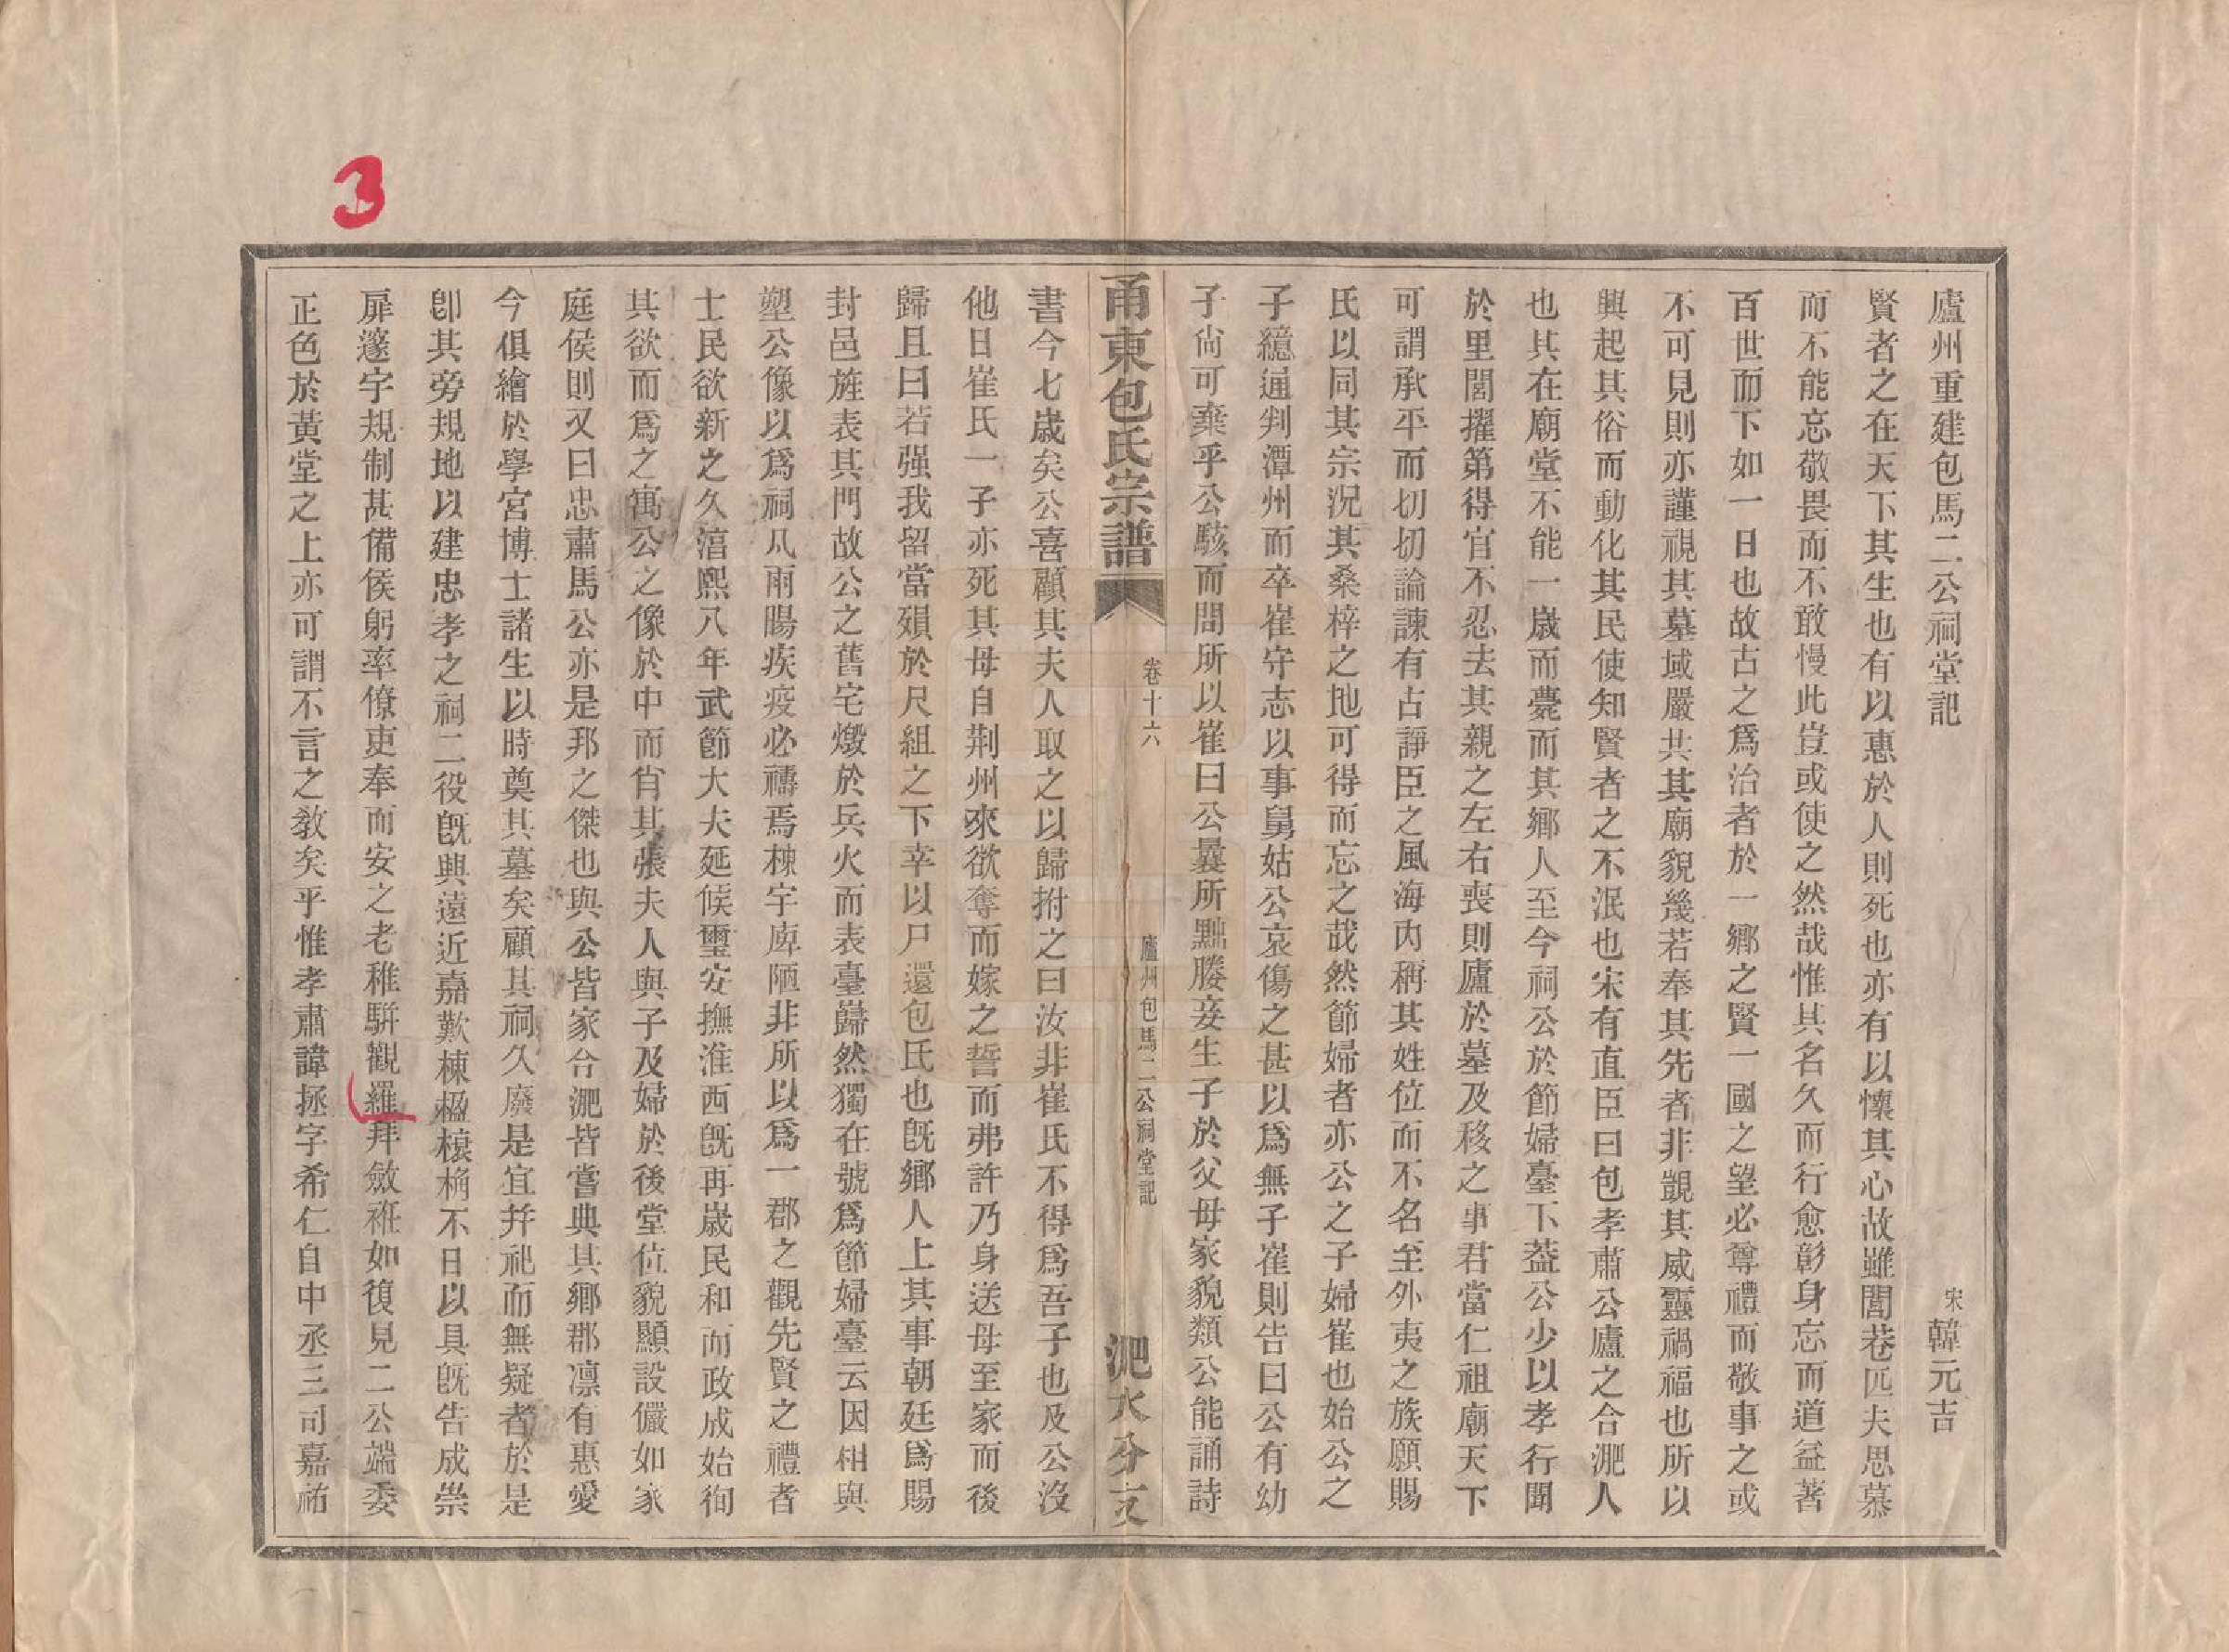 3
廬州重建包馬二公祠堂記
宋 韓元吉
賢者之在天下其生也有以惠於人則死也亦有以懷其心故雖閭巷匹夫思慕
而不能忘敬畏而不敢慢此豈或使之然哉惟其名久而行愈彰身忘而道益著
百世而下如一日也故古之爲治者於一鄉之賢一國之望必尊禮而敬事之或
不可見則亦謹視其墓域嚴共其廟貌幾若奉其先者非覬其威靈禍福也所以
興起其俗而動化其民使知賢者之不泯也宋有直臣曰包孝肅公廬之合淝人
也其在廟堂不能一歲而薨而其鄉人至今祠公於節婦臺下葢公少以孝行聞
於里閭擢第得官不忍去其親之左右喪則廬於墓及移之事君當仁祖廟天下
可謂承平而切切論諫有古諍臣之風海內稱其姓位而不名至外夷之族願賜
氏以同其宗況其桑梓之地可得而忘之哉然節婦者亦公之子婦崔也始公之
子繶通判潭州而卒崔守志以事舅姑公哀傷之甚以爲無子崔則告曰公有幼
子尙可棄乎公駭而問所以崔曰公曩所黜媵妾生子於父母家貌類公能誦詩
甬東包氏宗譜
卷十六
廬州包馬二公祠堂記
淝水分支
書今七歲矣公喜顧其夫人取之以歸拊之曰汝非崔氏不得爲吾子也及公沒
他日崔氏一子亦死其母自荆州來欲奪而嫁之誓而弗許乃身送母至家而後
歸且曰若强我留當殞於尺組之下幸以尸還包氏也旣鄉人上其事朝廷爲賜
封邑旌表其門故公之舊宅燬於兵火而表臺巋然獨在號爲節婦臺云因相與
塑公像以爲祠凡雨暘疾疫必禱焉棟宇庳陋非所以爲一郡之觀先賢之禮者
士民欲新之久淯熙八年武節大夫延候璽安撫淮西旣再歲民和而政成始徇
其欲而爲之寓公之像於中而肖其張夫人與子及婦於後堂位貌顯設儼如家
庭侯則又曰忠肅馬公亦是邦之傑也與公皆家合淝皆嘗典其鄉郡凛有惠愛
今俱繪於學宮博士諸生以時奠其墓矣顧其祠久廢是宜幷祀而無疑者於是
卽其旁規地以建忠孝之祠二役旣興遠近嘉歎棟楹榱桷不日以具旣告成崇
扉邃宇規制甚備侯躬率僚吏奉而安之老稚駢觀羅拜斂袵如復見二公端委
正色於黃堂之上亦可謂不言之敎矣乎惟孝肅諱拯字希仁自中丞三司嘉祐